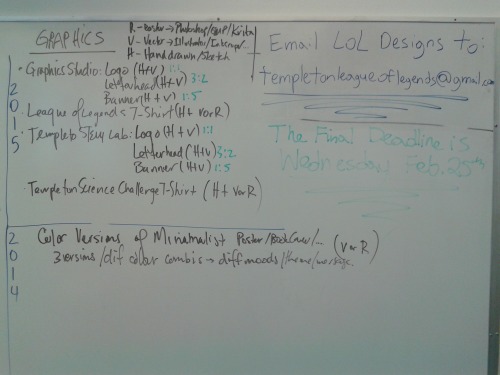 GRAPHICS
R - Raster → Photoshop/GIMP/Krita
V - Vector → Illustrator/Inkscape
H - Hand drawn/Sketch
2015
· Graphics Studio: Logo (H+V) 1:1
Letterhead (H+V) 3:2
Banner (H + V) 1:5
· League of Legends T-Shirt (H+ V or R)
· Templeton STEM Lab: Logo (H + V) 1:1
Letterhead (H+V) 3:2
Banner (H+V) 1:5
· Templeton Science Challenge T-Shirt (H + V or R)
2014
Color Versions of Minimalist Poster/Book Cover/... (V or R)
3 versions/dif colour combis → diff moods/theme/message.
Email LoL Designs to:
templetonleagueoflegends@gmail.co
The Final Deadline is
Wednesday Feb. 25th